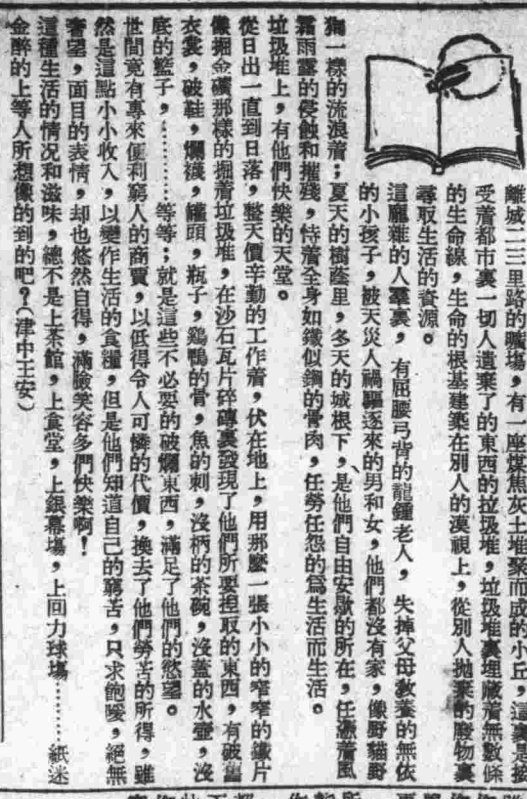 離城二三里路的曠場，有一座煤焦灰土堆聚而成的小丘，這裏是接
受着都市裏一切人遺棄了的東西的垃圾堆，垃圾堆裏埋藏着無數條
的生命線，生命的根基建築在別人的漠視上，從別人拋棄的廢物裏
尋取生活的資源。
這龐雜的人羣裏，有屈腰弓背的龍鍾老人，失掉父母教養的無依
的小孩子，被天災人禍驅逐來的男和女，他們都沒有家，像野貓野
狗一樣的流浪着；夏天的樹蔭里，冬天的城根下，是他們自由安歇的所在，任憑着風
霜雨露的侵蝕和摧殘，恃着全身如鐵似鋼的骨肉，任勞任怨的爲生活而生活。
垃圾堆上，有他們快樂的天堂。
從日出一直到日落，整天價辛勤的工作着，伏在地上，用那麼一張小小的窄窄的鐵片
像掘金礦那樣的掘着垃圾堆，在沙石瓦片碎磚裏發現了他們所要揑取的東西，有破舊
衣裳，破鞋，爛襪，罐頭，瓶子，鷄鴨的骨，魚的刺，沒柄的茶碗，沒蓋的水壺，沒
底的籃子，………等等；就是這些不必要的破爛東西，滿足了他們的慾望。
世間竟有專來便利窮人的商賈，以低得令人可憐的代價，換去了他們勞苦的所得，雖
然是這點小小收入，以變作生活的食糧，但是他們知道自己的窮苦，只求飽暖，絕無
奢望，面目的表情，却也悠然自得，滿臉笑容多們快樂啊！
這種生活的情况和滋味，總不是上茶館，上食堂，上銀幕場，上回力球場………紙迷
金醉的上等人所想像的到的吧？（津中王安）